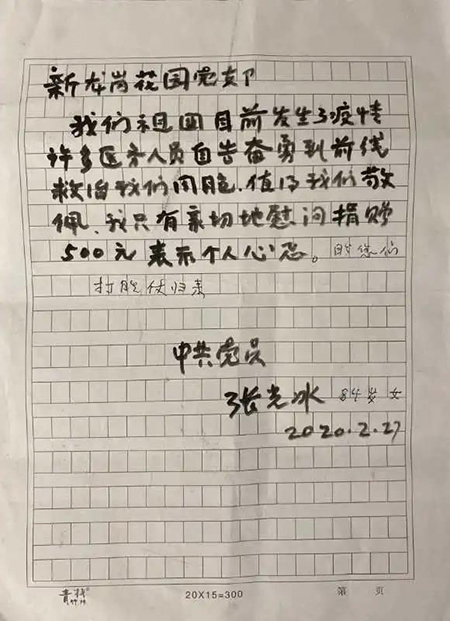 新龙岗花园党支部
我们祖国目前发生了疫情
许多医务人员自告奋勇到前线
救治我们同胞、值得我们敬
佩、我只有亲切地慰问捐赠
500元表示个人心意。盼您们
打胜仗归来
中共党员
张光冰 84岁女
2020.2.27
20X15=300 第 页